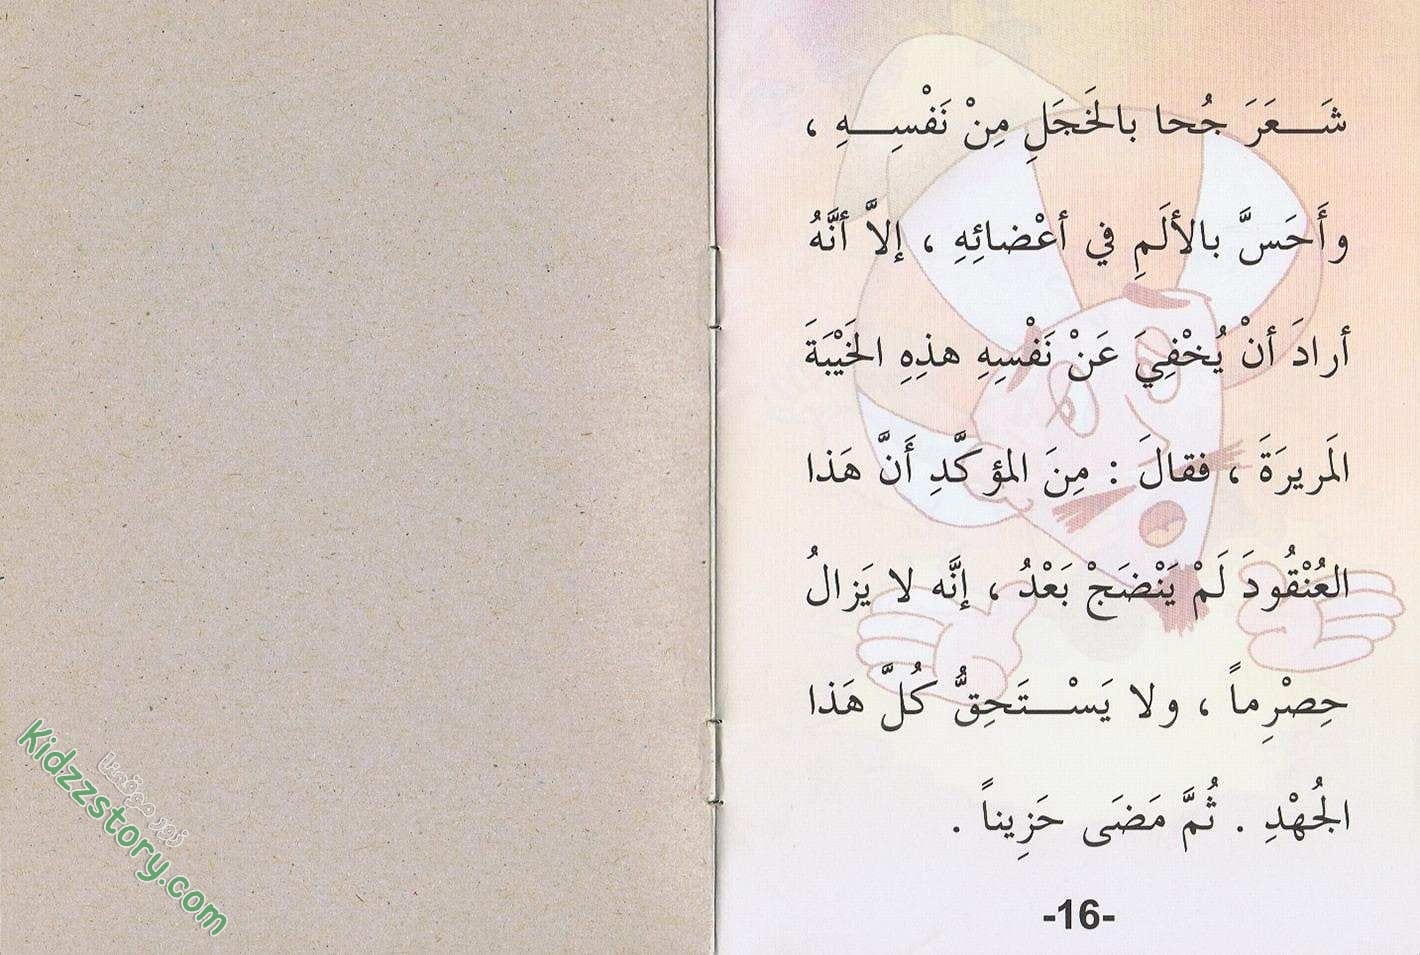 شَـــعَرَ جُحا بالخَجَلِ مِنْ نَفْسِـــهِ ،
وأَحَسَّ بالألَمِ في أعْضائِهِ ، إلاَّ أنَّهُ
أرادَ أنْ يُخْفِيَ عَنْ نَفْسِهِ هذِهِ الخَيْبَةَ
المَريرَةَ ، فقالَ : مِنَ المؤكَّدِ أَنَّ هَذا
العُنْقُودَ لَمْ يَنْضَجْ بَعْدُ ، إنَّه لا يَزالُ
حِصْرِماً ، ولا يَسْـــتَحِقُّ كُلَّ هَذا
الجُهْدِ . ثُمَّ مَضَى حَزِيناً .
-16-
زوروا موقعنا
Kidzzstory.com